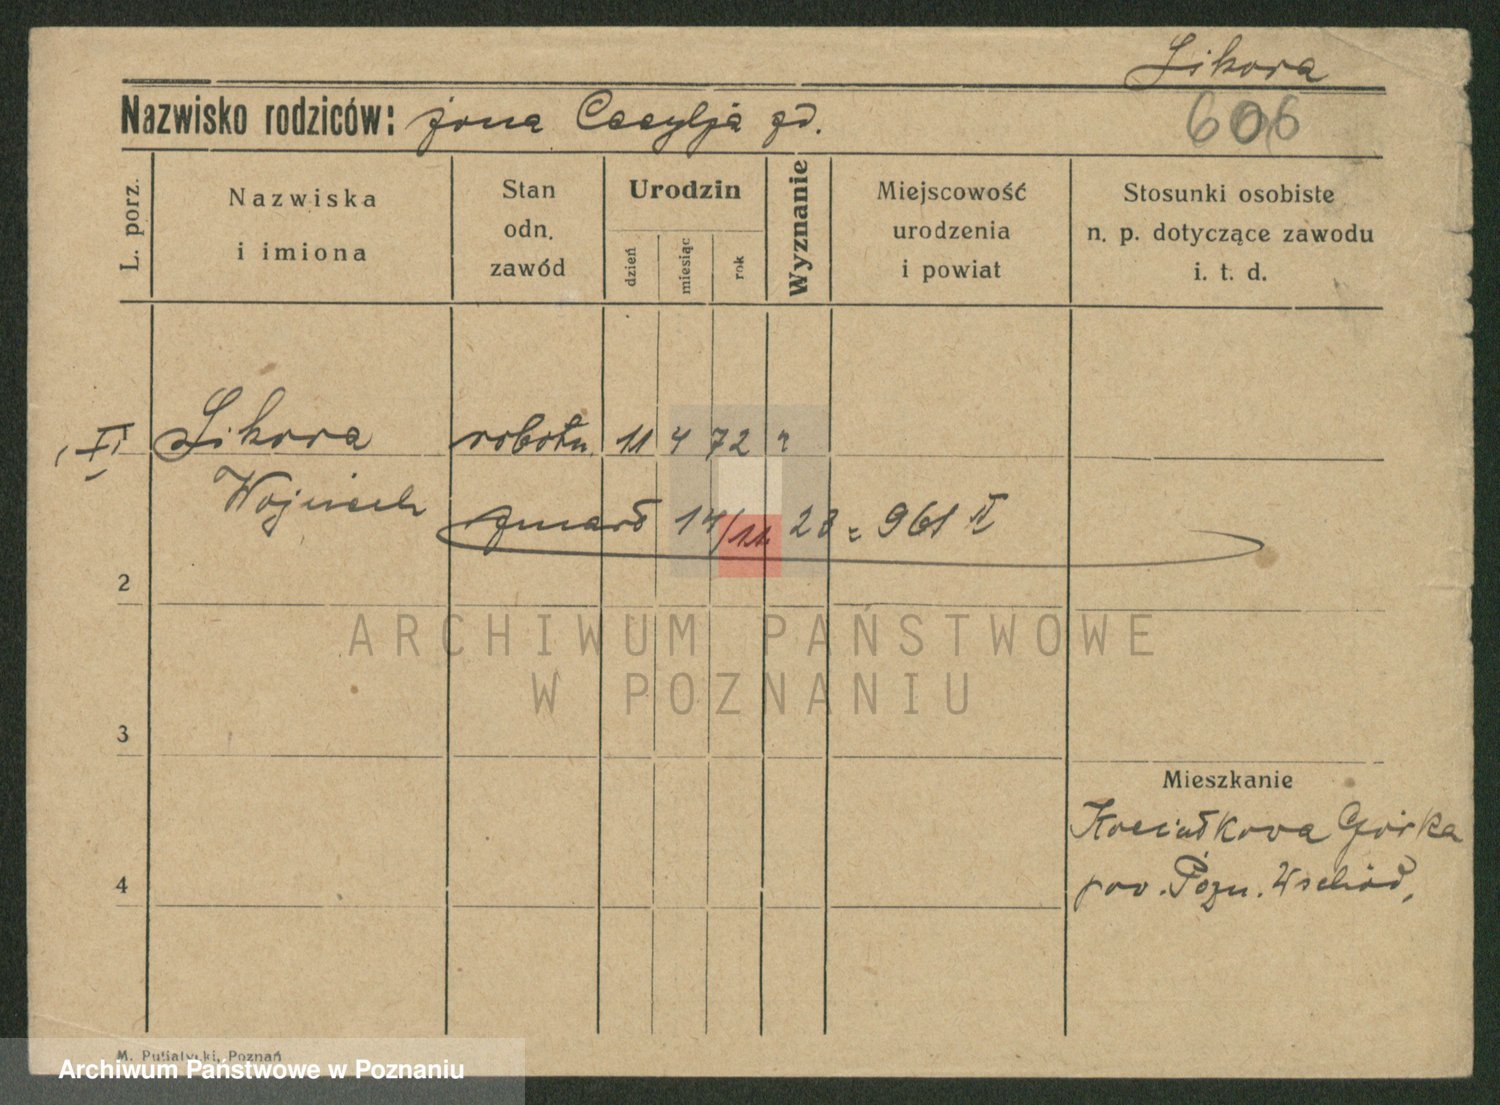 Sikora
Nazwisko rodziców: żona Cecylja zd.
606
L. porz.
Nazwiska
i imiona
Stan
odn.
zawód
Urodzin
dzień
miesiąc
rok
Wyznanie
Miejscowość
urodzenia
i powiat
Stosunki osobiste
n. p. dotyczące zawodu
i. t. d.
Sikora robotn. 11 4 72 r
Wojciech
zmarł 14/11. 28 = 961 II
2
3
4
Mieszkanie
Kociałkowa Górka
pow. Pozn. Wschód.
ARCHIWUM PAŃSTWOWE
W POZNANIU
M. Putiatycki, Poznań
Archiwum Państwowe w Poznaniu